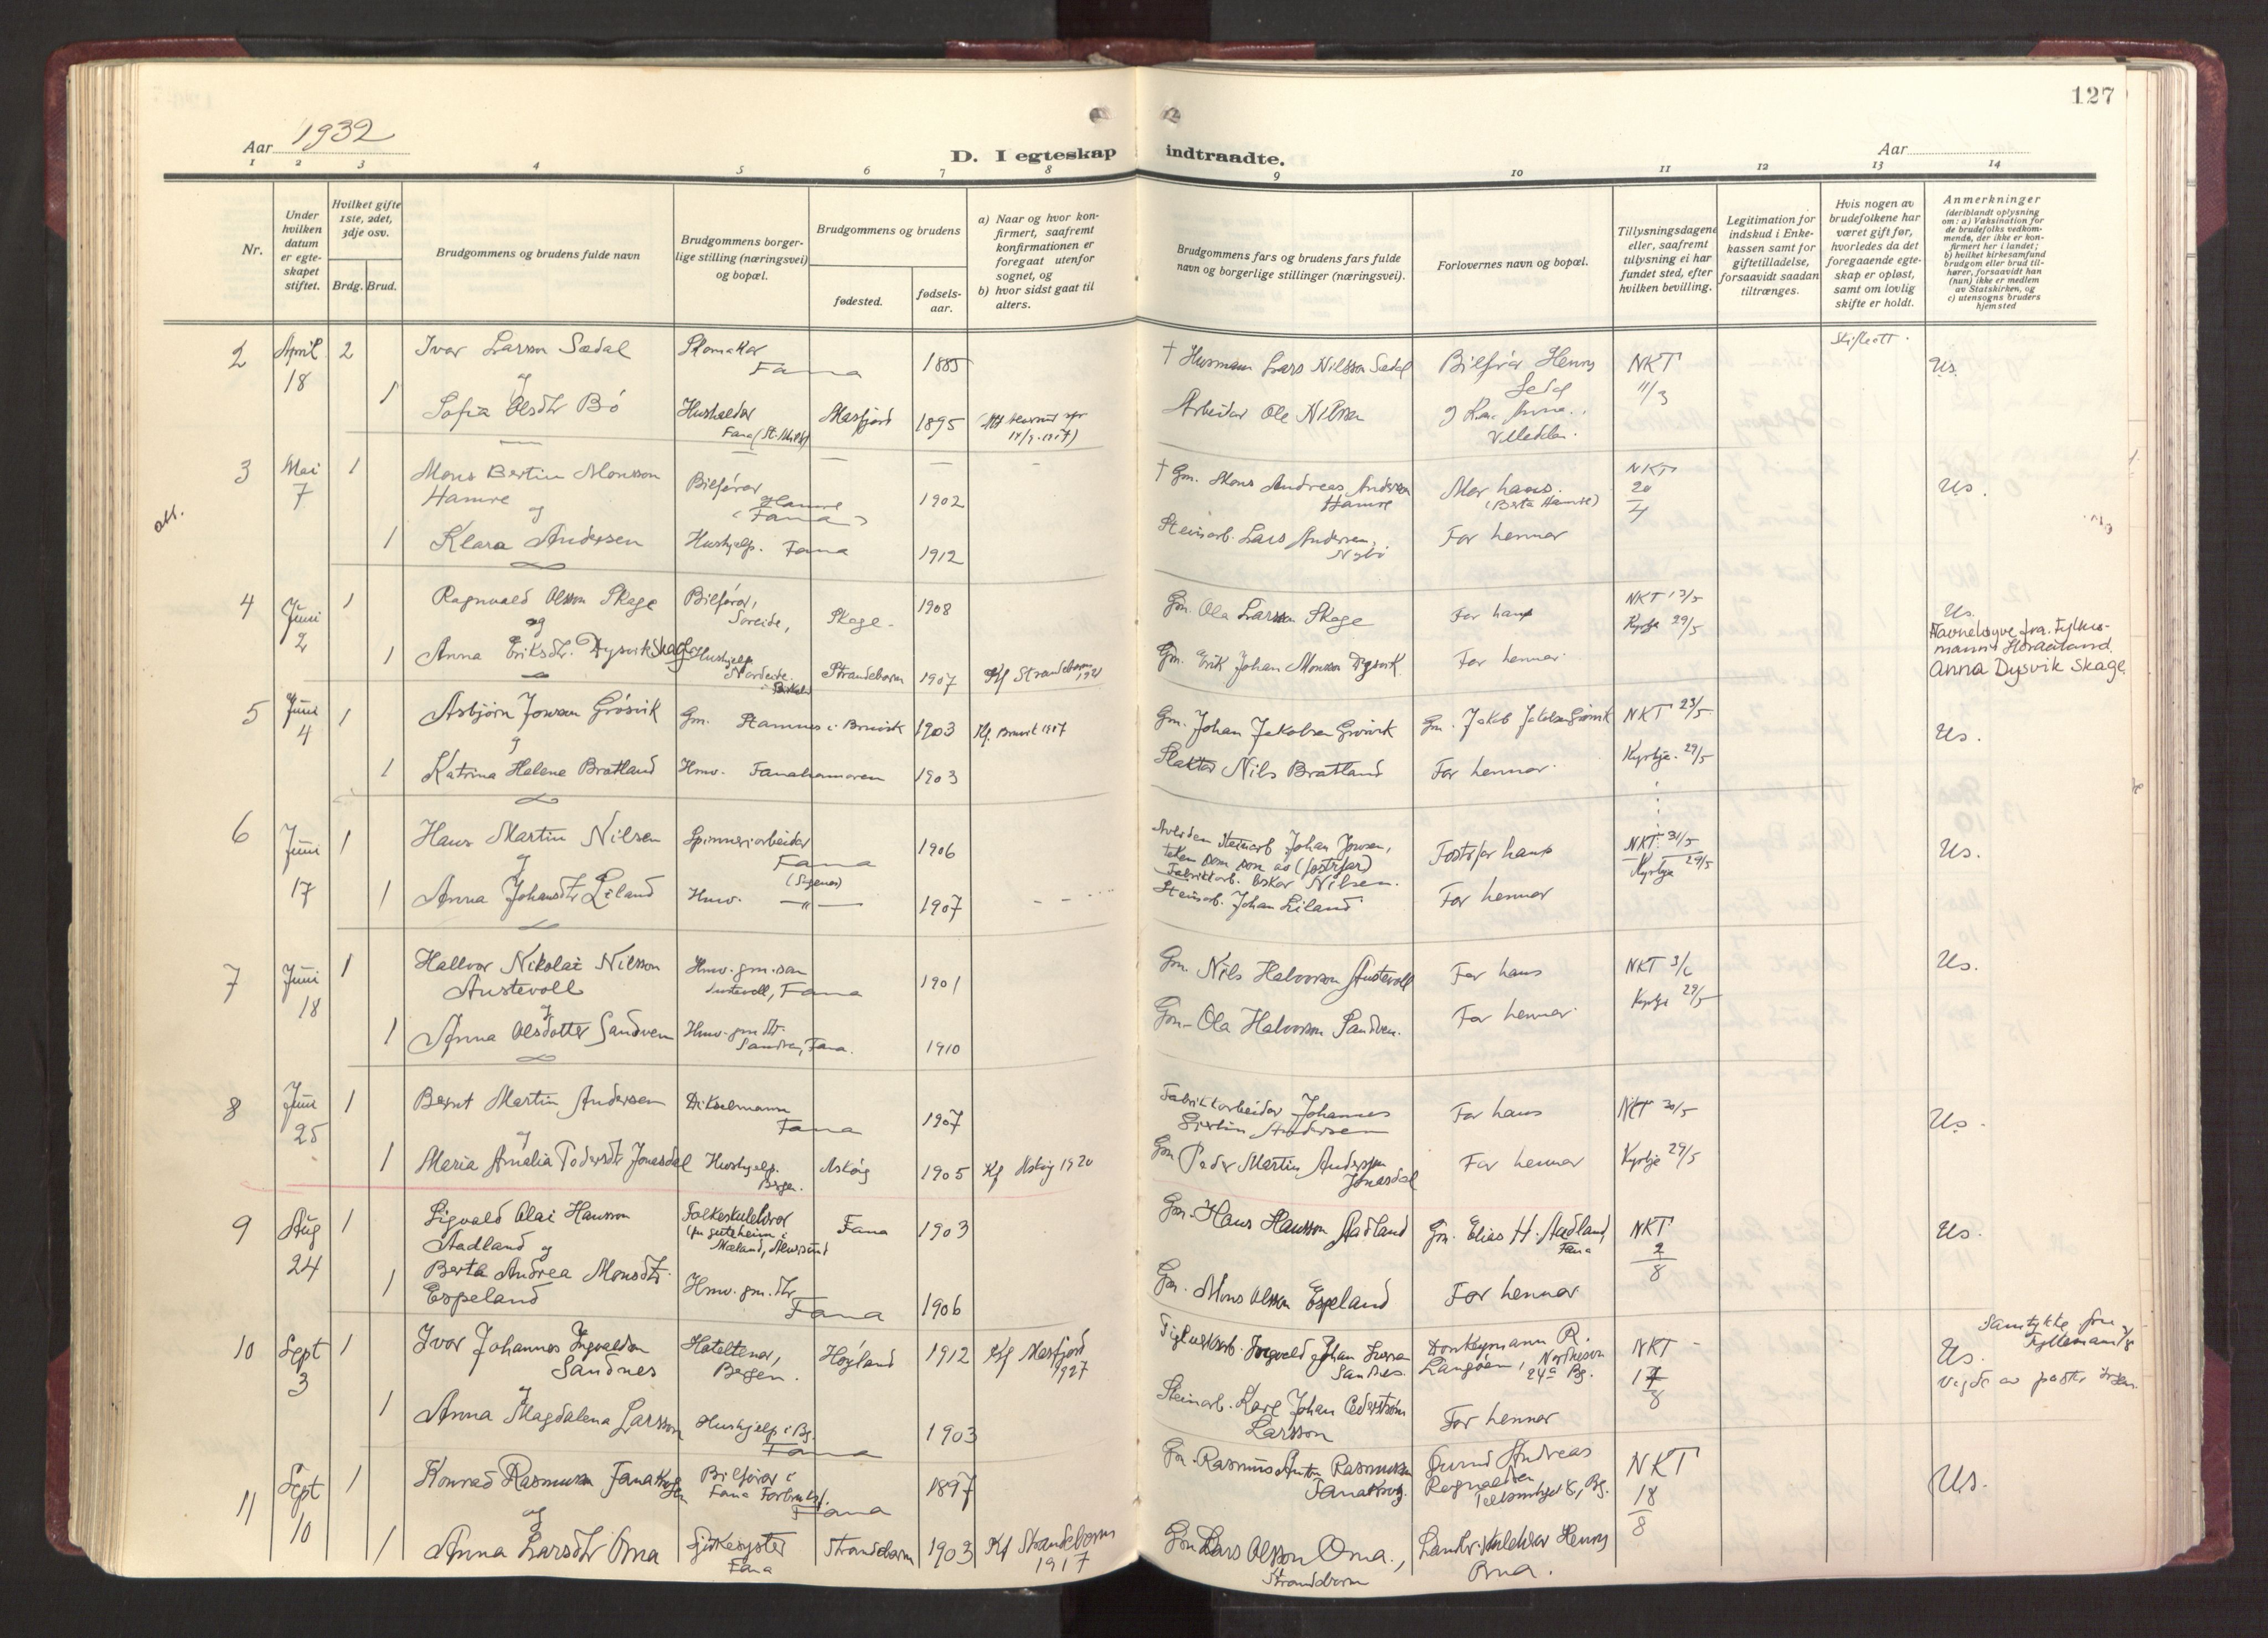 127
Aar 1932
D. I egteskap indtraadte.
Aar
1 2 3 4 5 6 7 8 9 10 11 12 13 14
Nr.
Under hvilken datum er egte-skapet stiftet.
Hvilket gifte 1ste, 2det, 3dje osv.
Brdg. Brud.
Brudgommens og brudens fulde navn
Brudgommens borger-lige stilling (næringsvei) og bopæl.
Brudgommens og brudens
fødested.
fødsels-aar.
a) Naar og hvor kon-firmert, saafremt konfirmationen er foregaat utenfor sognet, og
b) hvor sidst gaat til alters.
Brudgommens fars og brudens fars fulde navn og borgerlige stillinger (næringsvei).
Forlovernes navn og bopæl.
Tillysningsdagene eller, saafremt tillysning ei har fundet sted, efter hvilken bevilling.
Legitimation for indskud i Enke-kassen samt for giftetilladelse, forsaavidt saadan tiltrænges.
Hvis nogen av brudefolkene har været gift før, hvorledes da det foregaaende egte-skap er opløst, samt om lovlig skifte er holdt.
Anmerkninger
(deriblandt oplysning om: a) Vaksination for de brudefolks vedkom-mende, der ikke er kon-firmert her i landet; b) hvilket kirkesamfund brudgom eller brud til-hører, forsaavidt han (hun) ikke er medlem av Statskirken, og c) utensogns bruders hjemsted
2 April 18 2 Ivar Larsson Sædal Skomakar Fana 1885 † Husmann Lars Nilsson Sædal Bilførar Henry NKT 11/3 Us.
og
1 Sofia Olsdtr Bø Hushaldar Fana Masfjord 1895 Arbeidar Ole Nilsen
3 Mai 7 1 Mons Bertin Monsson Hamre Bilførar Hamre (Fana) 1902 † Gm. Mons Andreas Anderson Hamre Mor hans. (Berta Hamre) NKT 20/4 Us.
og
1 Klara Andersen Hushjelp. Fana 1912 Steinarb. Lars Andersen, Nybø Far hennar
4 Juni 2 1 Ragnvald Olsson Skage Bilførar, Søreide, Skage. 1908 Gm. Ola Larsson Skage Far hans NKT 17/5 Us.
og
1 Anna Eriksdtr. Dysvik Skage Hushjelp Strandebarm 1907 Kf Strandebarm 1921 Gm. Erik Johan Monsson Dysvik Far hennar Kyrkje 29/5
Navneløyve fra Fylkes-
mann i Hordaland.
Anna Dysvik Skage
5 Juni 4 1 Asbjørn Jonsson Grøsvik Gm. Stamnes i Bruvik 1903 Kf. Bruvik 1917 Gm. Johan Jakobsen Grøsvik Gm. Jakob Jakobsen Grøsvik NKT 23/5 Us.
og
1 Katrina Helene Bratland Hmv. Fanahammeren 1903 Slaktar Nils Bratland Far hennar Kyrkje. 29/5
6 Juni 17 1 Hans Martin Nilsen Spinneriarbeidar Fana 1906 Steinarb Johan Jonsen, teken som son av (fosterfar) Fabrikkarb. Oskar Nilsen. Fosterfar hans NKT. 31/5 Kyrkje 29/5 Us.
og
1 Anna Johansdtr Liland Hmv. —„— 1907 Steinarb. Johan Liland Far hennar
7 Juni 18 1 Hallvor Nikolai Nilsson Austevoll Hmv. gm. son Austevoll, Fana 1901 Gm. Nils Halvorson Austevoll Far hans NKT 3/6 Us.
og
1 Anna Olsdotter Sandven Hmv. gm dtr. Sandven, Fana. 1910 Gm. Ola Halvorson Sandven. Far hennar Kyrkje 29/5
8 Juni 25 1 Bernt Martin Andersen Fana 1907 Fabrikkarbeidar Johannes Andersen Far hans NKT 30/5 Us.
og
1 Maria Amalia Pedersdtr Jonasdal Hushjelp. Bergen. Askøy 1905 Kf Askøy 1920 Gm Peder Martin Anderson Jonasdal Far hennar Kyrkje 29/5
9 Aug 24 1 Sigvald Olai Hansson Aadland og Folkeskulelærar Fana 1903 Gm. Hans Hansson Aadland Gm. Elias H. Aadland, Fana NKT 2/8 Us.
1 Berta Andrea Monsdtr. Espeland Hmv. gm. dtr Fana 1906 Gm. Mons Olsson Espeland Far hennar
10 Sept 3 1 Ivar Johannes Ingvaldson Sandnes Hoteltenar, Bergen. Høyland 1912 Kf Masfjord 1927 Ingvald Johan Sandnes. Donkeymann R. Langøen, NKT 17/8 Us.
Samtykke fra Fylkesmann
og
1 Anna Magdalena Larsson Hushjelp i Bg. Fana 1903 Steinarb. Karl Johan Cederstrøm Larsson Far hennar
11 Sept 10 1 Konrad Rasmusson Fanaskog Bilførar i Fana Fana 1897 Gm. Rasmus Anton Rasmusson Fanaskog. Andreas NKT 18/8 Us.
og
1 Anna Larsdtr Oma Sjukesyster Fana Strandebarm 1903 Kf Strandebarm 1917 Gm Lars Olsson Oma., Strandebarm Henry Oma.